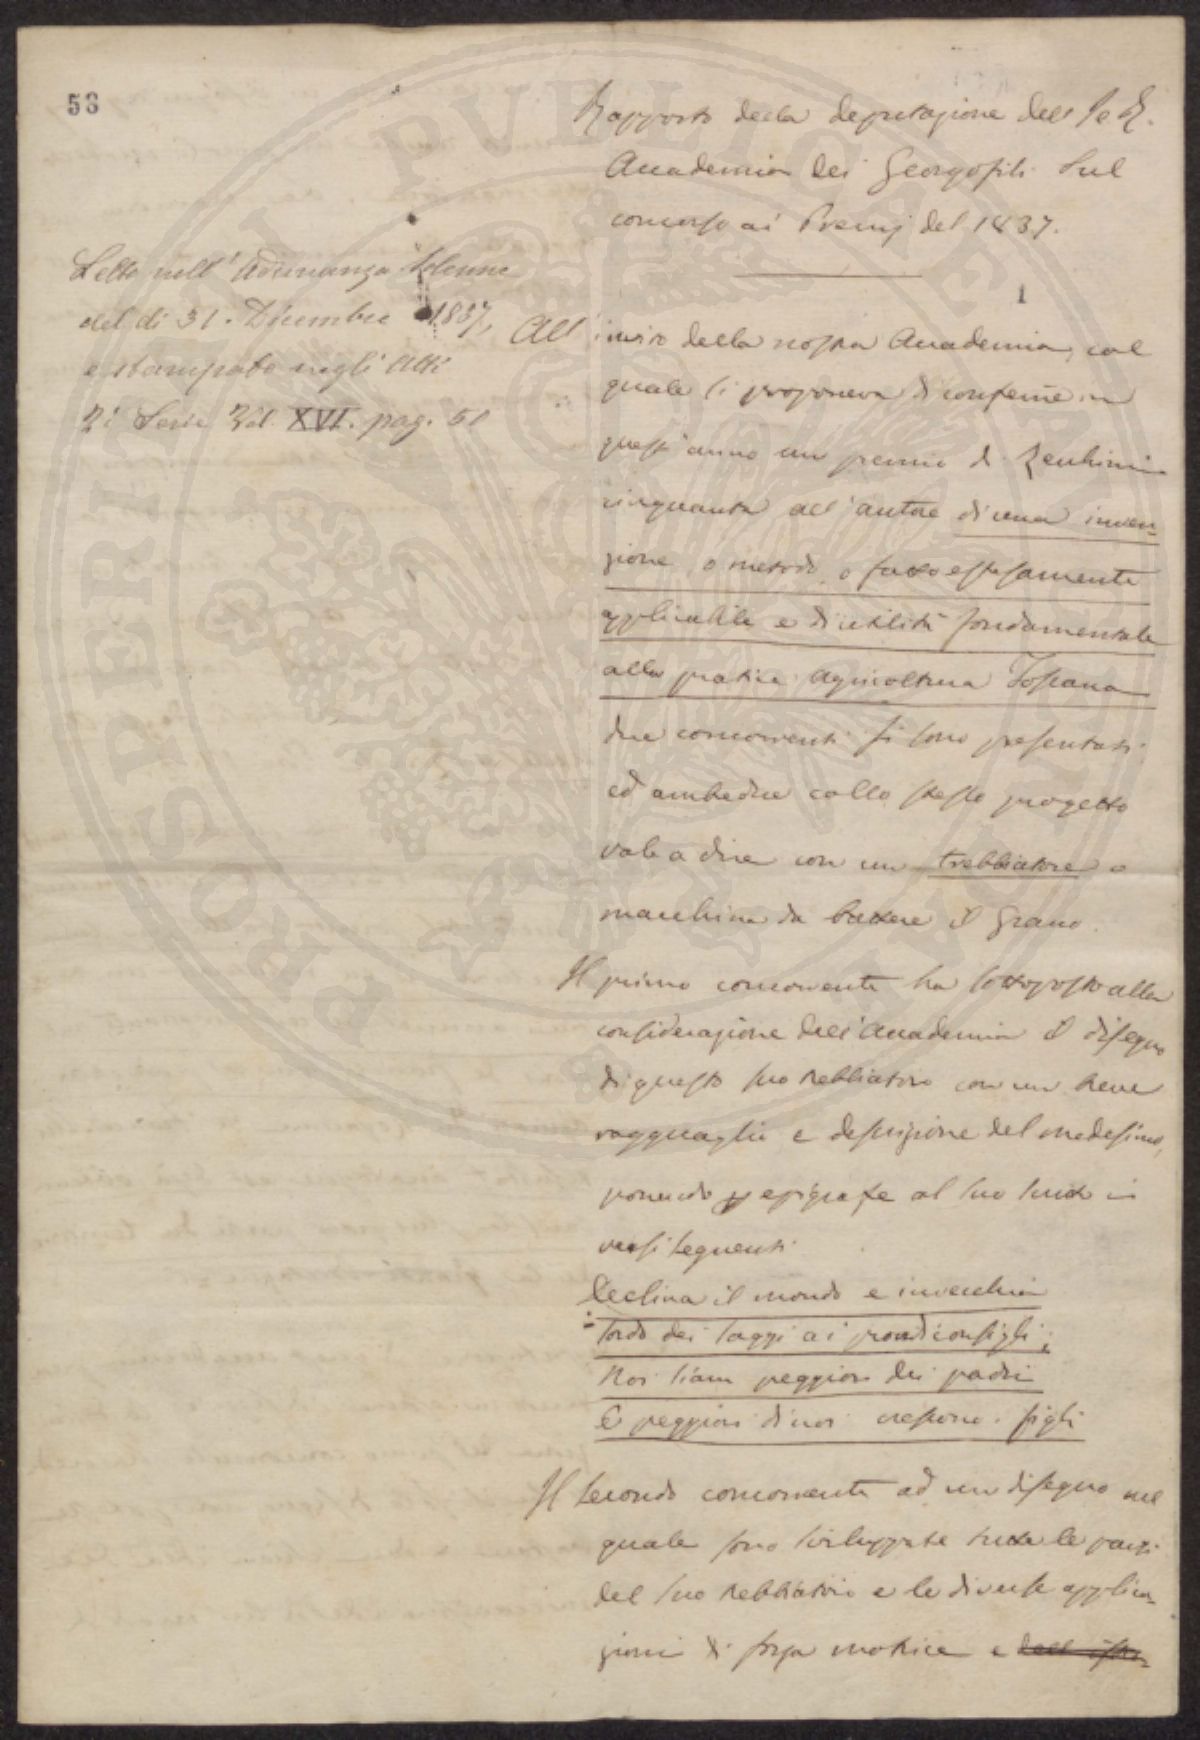 53
Rapporto della deputazione dell' I e R.
Accademia dei Georgofili sul
concorso ai Premj del 1837.
Letto nell' Adunanza Solenne
del di 31. Dicembre 1837,
e stampato negli Atti
Vol. XVI. pag. 50
1
All' invito della nostra Accademia, col
quale si proponeva di conferire in
quest' anno un premio di Zecchini
cinquanta all' autore di una inven-
zione, o metodo, o fatto estesamente
applicabile e di utilità fondamentale
alla pratica Agricoltura Toscana
due concorrenti si sono presentati
ed ambedue collo stesso progetto
vale a dire con un trebbiatore o
macchina da battere il Grano.
Il primo concorrente ha sottoposto alla
considerazione dell' Accademia il disegno
di questo suo trebbiatoio con un breve
ragguaglio e descrizione del medesimo,
ponendo p epigrafe al suo scritto i
versi seguenti
Declina il mondo e invecchia
sordo dei saggi ai provvidi consigli;
Noi siam peggiori dei padri
E peggiori di noi crescono i figli
Il secondo concorrente ad un disegno nel
quale sono sviluppate tutte le parti
del suo trebbiatoio e le diverse applica-
zioni di forza motrice e
PROSPERITATI PVBLICAE AVGENDAE